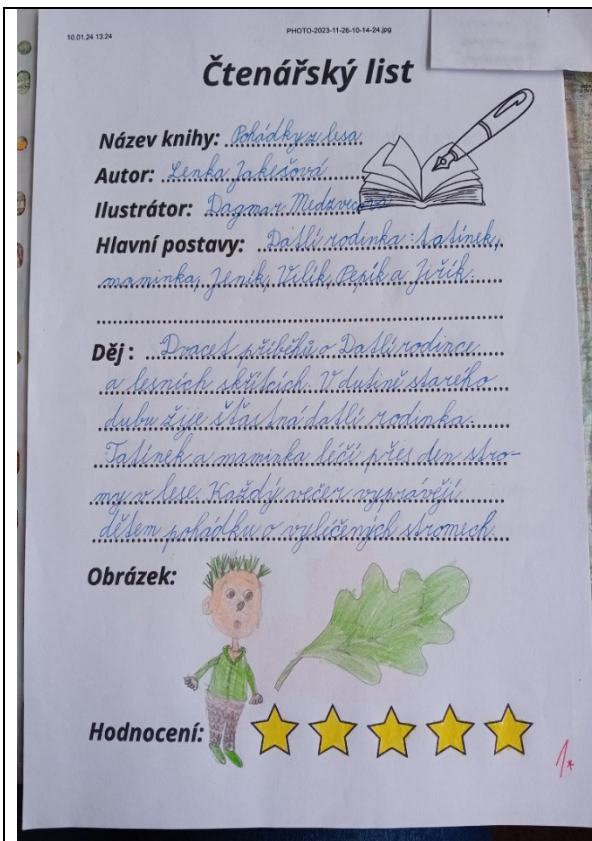 10.01.24 13:24
PHOTO-2023-11-26-10-14-24.jpg
Čtenářský list
Název knihy: Pohádky z lesa
Autor: Lenka Jakešová
Ilustrátor: Dagmar Medzvecová
Hlavní postavy: Datlí rodinka: tatínek,
maminka, Jeník, Vilík, Pepík a Jiřík.
Děj: Dvacet příběhů o Datlí rodince
a lesních skřítcích. V dutině starého
dubu žije šťastná datlí rodinka.
Tatínek a maminka léčí přes den stro-
my v lese. Každý večer vyprávějí
dětem pohádku o vyličených stromech.
Obrázek:
Hodnocení:
1*